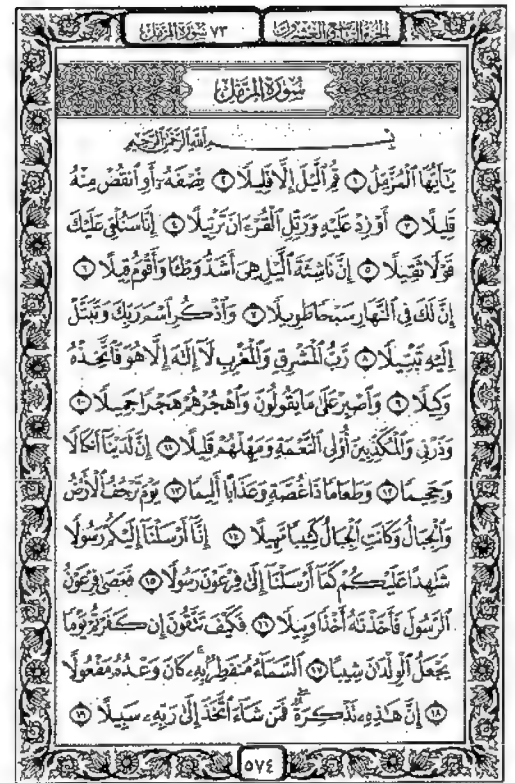 الجزء التاسع والعشرون
٧٣ سورة المزمل
سُورَةُ المُزَّمِّل
بِسْمِ اللَّهِ الرَّحْمَٰنِ الرَّحِيمِ
يَـٰٓأَيُّهَا ٱلْمُزَّمِّلُ ١ قُمِ ٱلَّيْلَ إِلَّا قَلِيلًا ٢ نِّصْفَهُۥٓ أَوِ ٱنقُصْ مِنْهُ
قَلِيلًا ٣ أَوْ زِدْ عَلَيْهِ وَرَتِّلِ ٱلْقُرْءَانَ تَرْتِيلًا ٤ إِنَّا سَنُلْقِى عَلَيْكَ
قَوْلًا ثَقِيلًا ٥ إِنَّ نَاشِئَةَ ٱلَّيْلِ هِىَ أَشَدُّ وَطْـًٔا وَأَقْوَمُ قِيلًا ٦
إِنَّ لَكَ فِى ٱلنَّهَارِ سَبْحًا طَوِيلًا ٧ وَٱذْكُرِ ٱسْمَ رَبِّكَ وَتَبَتَّلْ
إِلَيْهِ تَبْتِيلًا ٨ رَّبُّ ٱلْمَشْرِقِ وَٱلْمَغْرِبِ لَآ إِلَـٰهَ إِلَّا هُوَ فَٱتَّخِذْهُ
وَكِيلًا ٩ وَٱصْبِرْ عَلَىٰ مَا يَقُولُونَ وَٱهْجُرْهُمْ هَجْرًا جَمِيلًا ١٠
وَذَرْنِى وَٱلْمُكَذِّبِينَ أُو۟لِى ٱلنَّعْمَةِ وَمَهِّلْهُمْ قَلِيلًا ١١ إِنَّ لَدَيْنَآ أَنكَالًا
وَجَحِيمًا ١٢ وَطَعَامًا ذَا غُصَّةٍ وَعَذَابًا أَلِيمًا ١٣ يَوْمَ تَرْجُفُ ٱلْأَرْضُ
وَٱلْجِبَالُ وَكَانَتِ ٱلْجِبَالُ كَثِيبًا مَّهِيلًا ١٤ إِنَّآ أَرْسَلْنَآ إِلَيْكُمْ رَسُولًا
شَـٰهِدًا عَلَيْكُمْ كَمَآ أَرْسَلْنَآ إِلَىٰ فِرْعَوْنَ رَسُولًا ١٥ فَعَصَىٰ فِرْعَوْنُ
ٱلرَّسُولَ فَأَخَذْنَـٰهُ أَخْذًا وَبِيلًا ١٦ فَكَيْفَ تَتَّقُونَ إِن كَفَرْتُمْ يَوْمًا
يَجْعَلُ ٱلْوِلْدَٰنَ شِيبًا ١٧ ٱلسَّمَآءُ مُنفَطِرٌۢ بِهِۦ ۚ كَانَ وَعْدُهُۥ مَفْعُولًا
١٨ إِنَّ هَـٰذِهِۦ تَذْكِرَةٌ ۖ فَمَن شَآءَ ٱتَّخَذَ إِلَىٰ رَبِّهِۦ سَبِيلًا ١٩
٥٧٤